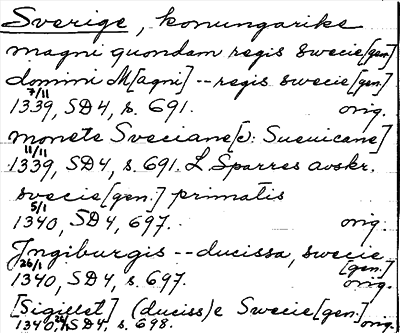 Sverige, konungarike
magni quondam regis swecie [gen]
domini M[agni] -- regis swecie [gen.]
7/11
1339, SD4, s. 691. orig.
monete Sveciane [c: Sueuicane]
11/11
1339, SD4, s. 691. L Sparres avskr.
svecie [gen.] primatis
5/1
1340, SD4, 697. orig.
Jngiburgis -- ducissa, swecie [gen.]
26/1
1340, SD4, s. 697. orig.
[Sigillet] (duciss)e Swecie [gen.]
1340, 26/1 SD4, s. 698. orig.